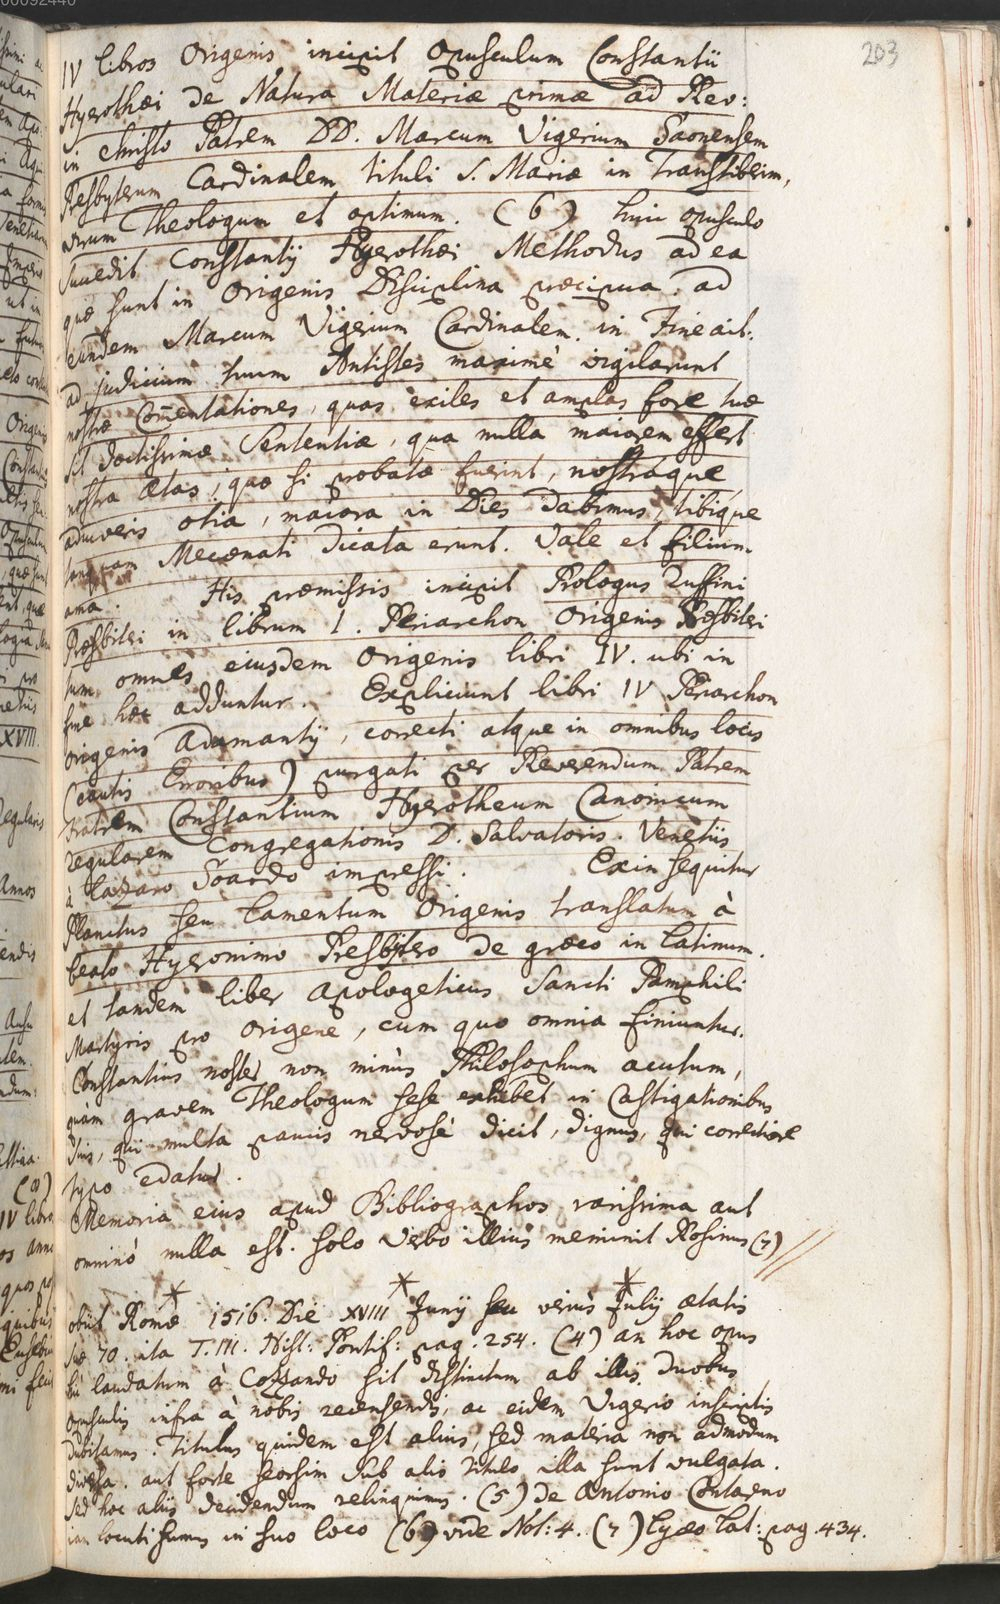 203
IV libros Origenis incipit Opusculum Constantii
Hyerothæi de Natura Materiæ primæ ad Rev:
in christo Patrem DD. Marcum Vigerium Saonensem
Presbyterum Cardinalem tituli S. Mariæ in Transtiberim,
virum Theologum et optimum. (6) huic opusculo
succedit Constantij Hyerothæi Methodus ad ea
quæ sunt in Origenis Disciplina præcipua. ad
eundem Marcum Vigerium Cardinalem. in Fine ait:
ad judicium tuum Antistes maximè vigilarunt
nostræ Com̄entationes, quas exiles et amplas fore tuæ
sit doctissimæ Sententiæ, qua nulla maiorem effert
nostra ætas, quæ si probatæ fuerint, nostráque
adiuveris otia, maiora in Dies dabimus, tibíque
tanquam Mecænati dicata erunt. Vale et filium
ama. His præmissis incipit Prologus Ruffini
Præsbiteri in librum 1. Periarchon Origenis Presbiteri
tum omnes eiusdem Origenis libri IV. ubi in
fine hæc adduntur. Expliciunt libri IV Periarchon
Origenis Adamantij, correcti atque in omnibus locis
(cautis Erroribus) purgati per Reverendum Patrem
fratrem Constantium Hyerotheum Canonicum
regularem Congregationis D. Salvatoris. Venetiis
à Lazzaro Soardo impressi. Exin sequitur
Planctus seu lamentum Origenis translatum à
beato Hyeronimo Presbitero de græco in latinum.
et tandem liber apologeticus Sancti Pamphili
Martyris pro Origene, cum quo omnia finiuntur.
Constantius noster non minùs Philosophum acutum,
quàm gravem Theologum sese exhibet in Castigationibus
suis, qui multa paucis nervosè dicit, dignus, qui correctiore
typo edatur.
Memoria eius apud Bibliographos rarissima aut
omninò nulla est. solo verbo illius meminit Rosinus (7)
obiit Romæ 1516. Die XVIII Junij seu veriùs Julij ætatis
suæ 70. ita T. III. Hist: Pontif: pag. 254. (4) an hoc opus
hic laudatum à Cozzando sit distinctum ab illis duobus
opusculis infra à nobis recensendis, ac eidem Vigerio inscriptis
dubitamus. Titulus quidem est alius, sed materia non admodum
diversa. aut forte seorsim sub alio titulo illa sunt vulgata.
sed hoc aliis decidendum relinquimus. (5) De Antonio Contareno
iam locuti sumus in suo loco (6) vide Not: 4. (7) Lyceo Lat: pag. 434.